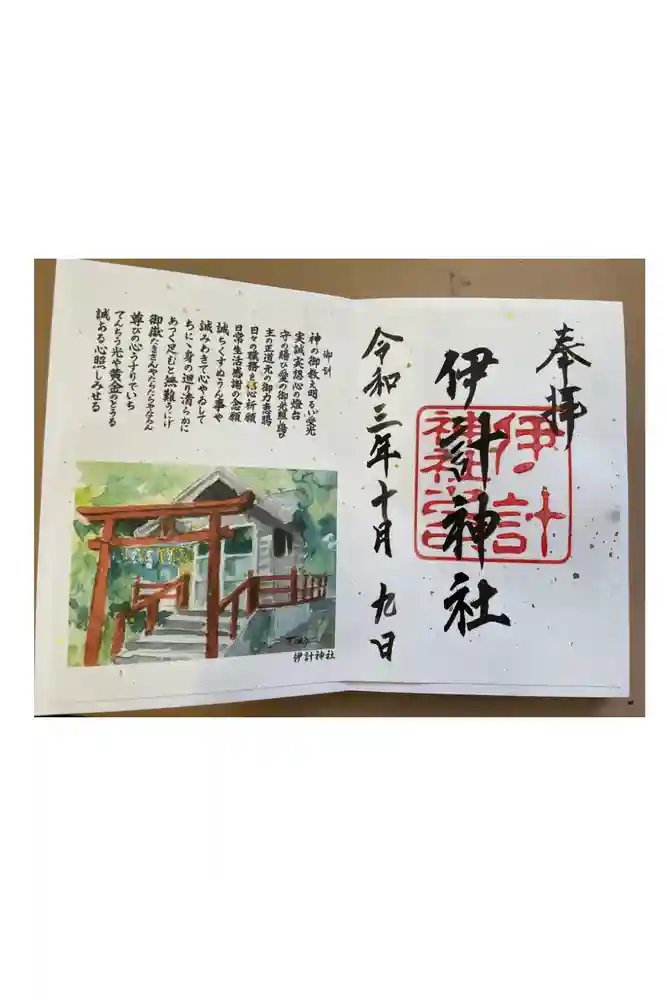 奉拝
伊計神社
伊計
神社印
令和三年十月九日
御計
神の御教え明るい栄光
実誠実認心の燈台
守の賜ひ愛の御光照し賜ひ
主の正道元の御力恵賜
日々の職務も信心祈願
日常生活感謝の念願
誠ちくすぬうん事や
誠みわきて心やゐして
ちにへ身の廻り清らかに
あつく足むと無難うにげ
尊びの心うすりでいち
てんちう光や黄金のどうる
誠ある心照しみせる
伊計神社